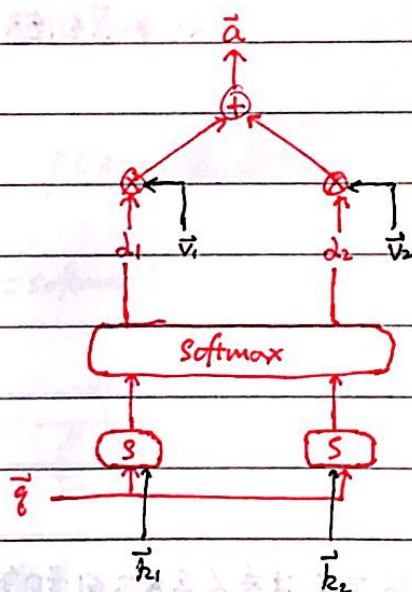 a⃗
+
× ×
d₁ v⃗₁ d₂ v⃗₂
Softmax
S S
q⃗
k⃗₁ k⃗₂